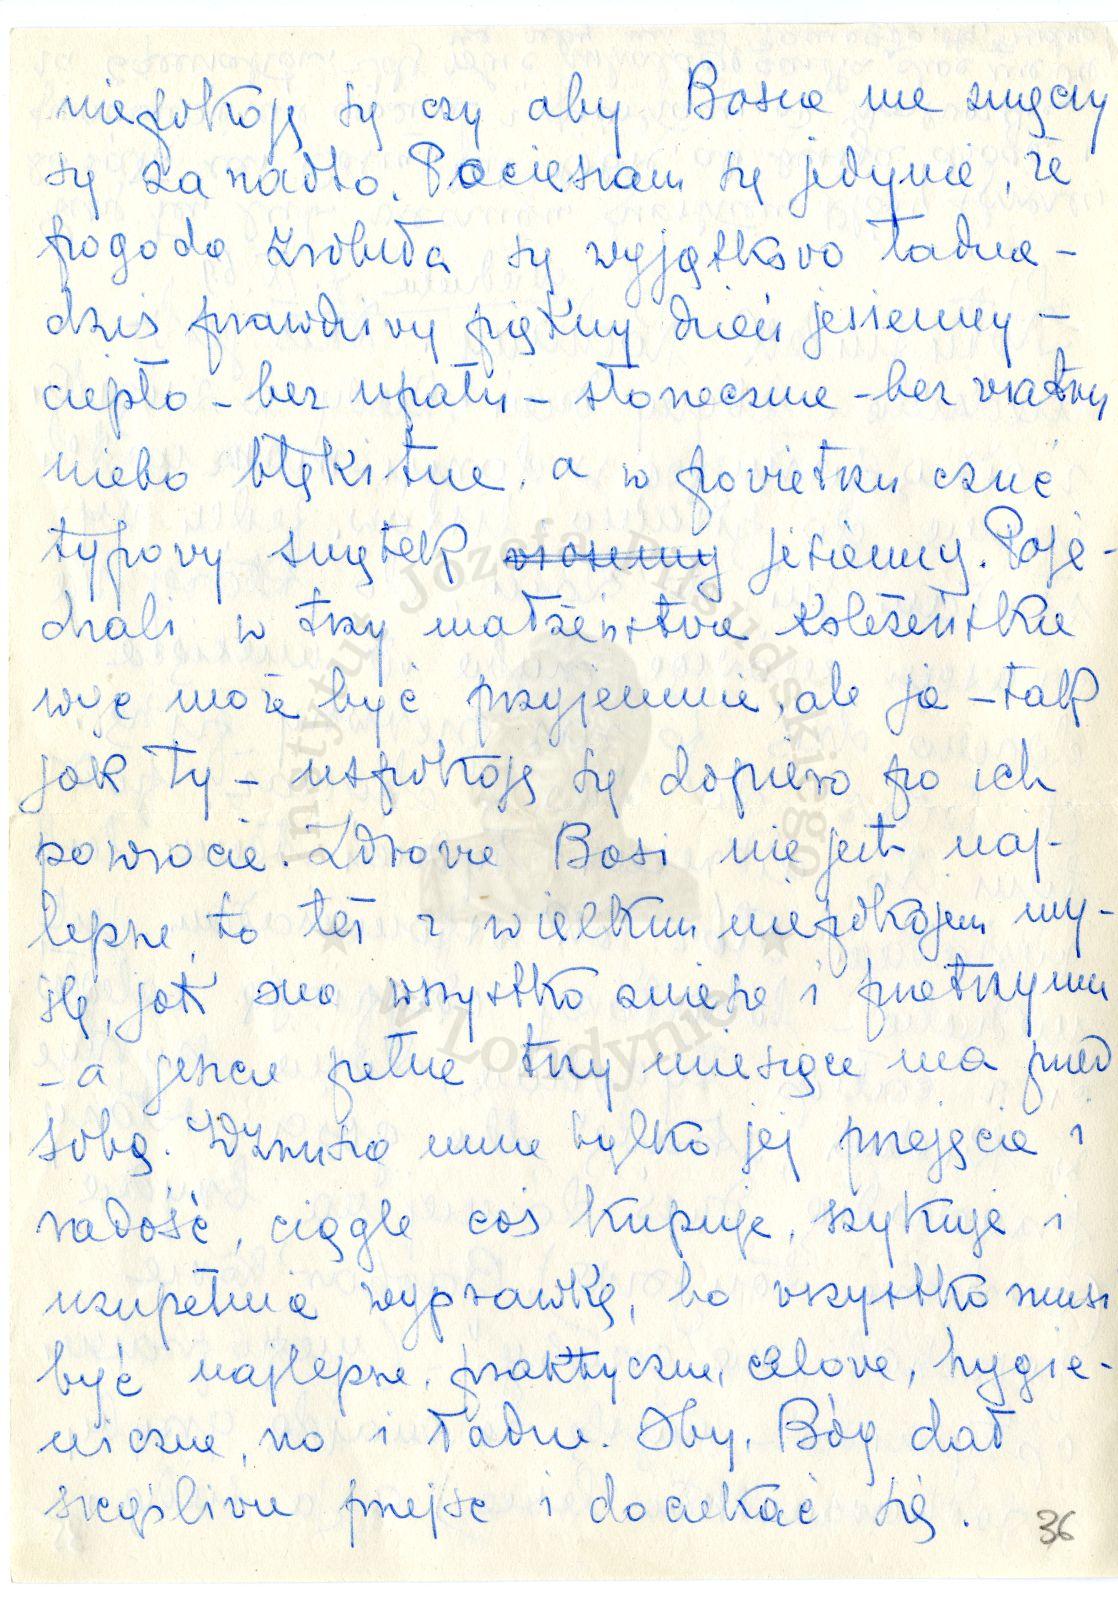 niepokoję się czy aby Basia nie zmęczy
się zanadto. Pocieszam się jedynie, że
pogoda zrobiła się wyjątkowo ładna -
dziś prawdziwy piękny dzień jesienny -
ciepło - bez upału - słonecznie - bez wiatru
niebo błękitne, a w powietrzu czuć
typowy smętek wiosenny jesienny. Poje-
chali w trzy małżeństwa koleżeńskie
więc może być przyjemnie, ale ja - tak
jak Ty - uspokoję się dopiero po ich
powrocie. Zdrowie Basi nie jest naj-
lepsze, to też z wielkim niepokojem my-
ślę, jak ona wszystko zniesie i przetrzyma
- a jeszcze pełne trzy miesiące ma przed
sobą. Wzrusza mnie tylko jej przejęcie i
radość, ciągle coś kupuje, szykuje i
uzupełnia wyprawkę, bo wszystko musi
być najlepsze, praktyczne, celowe, hygie-
niczne, no i ładne. Oby, Bóg dał
szczęśliwie przejść i doczekać się.
36
Instytut Józefa Piłsudskiego
w Londynie